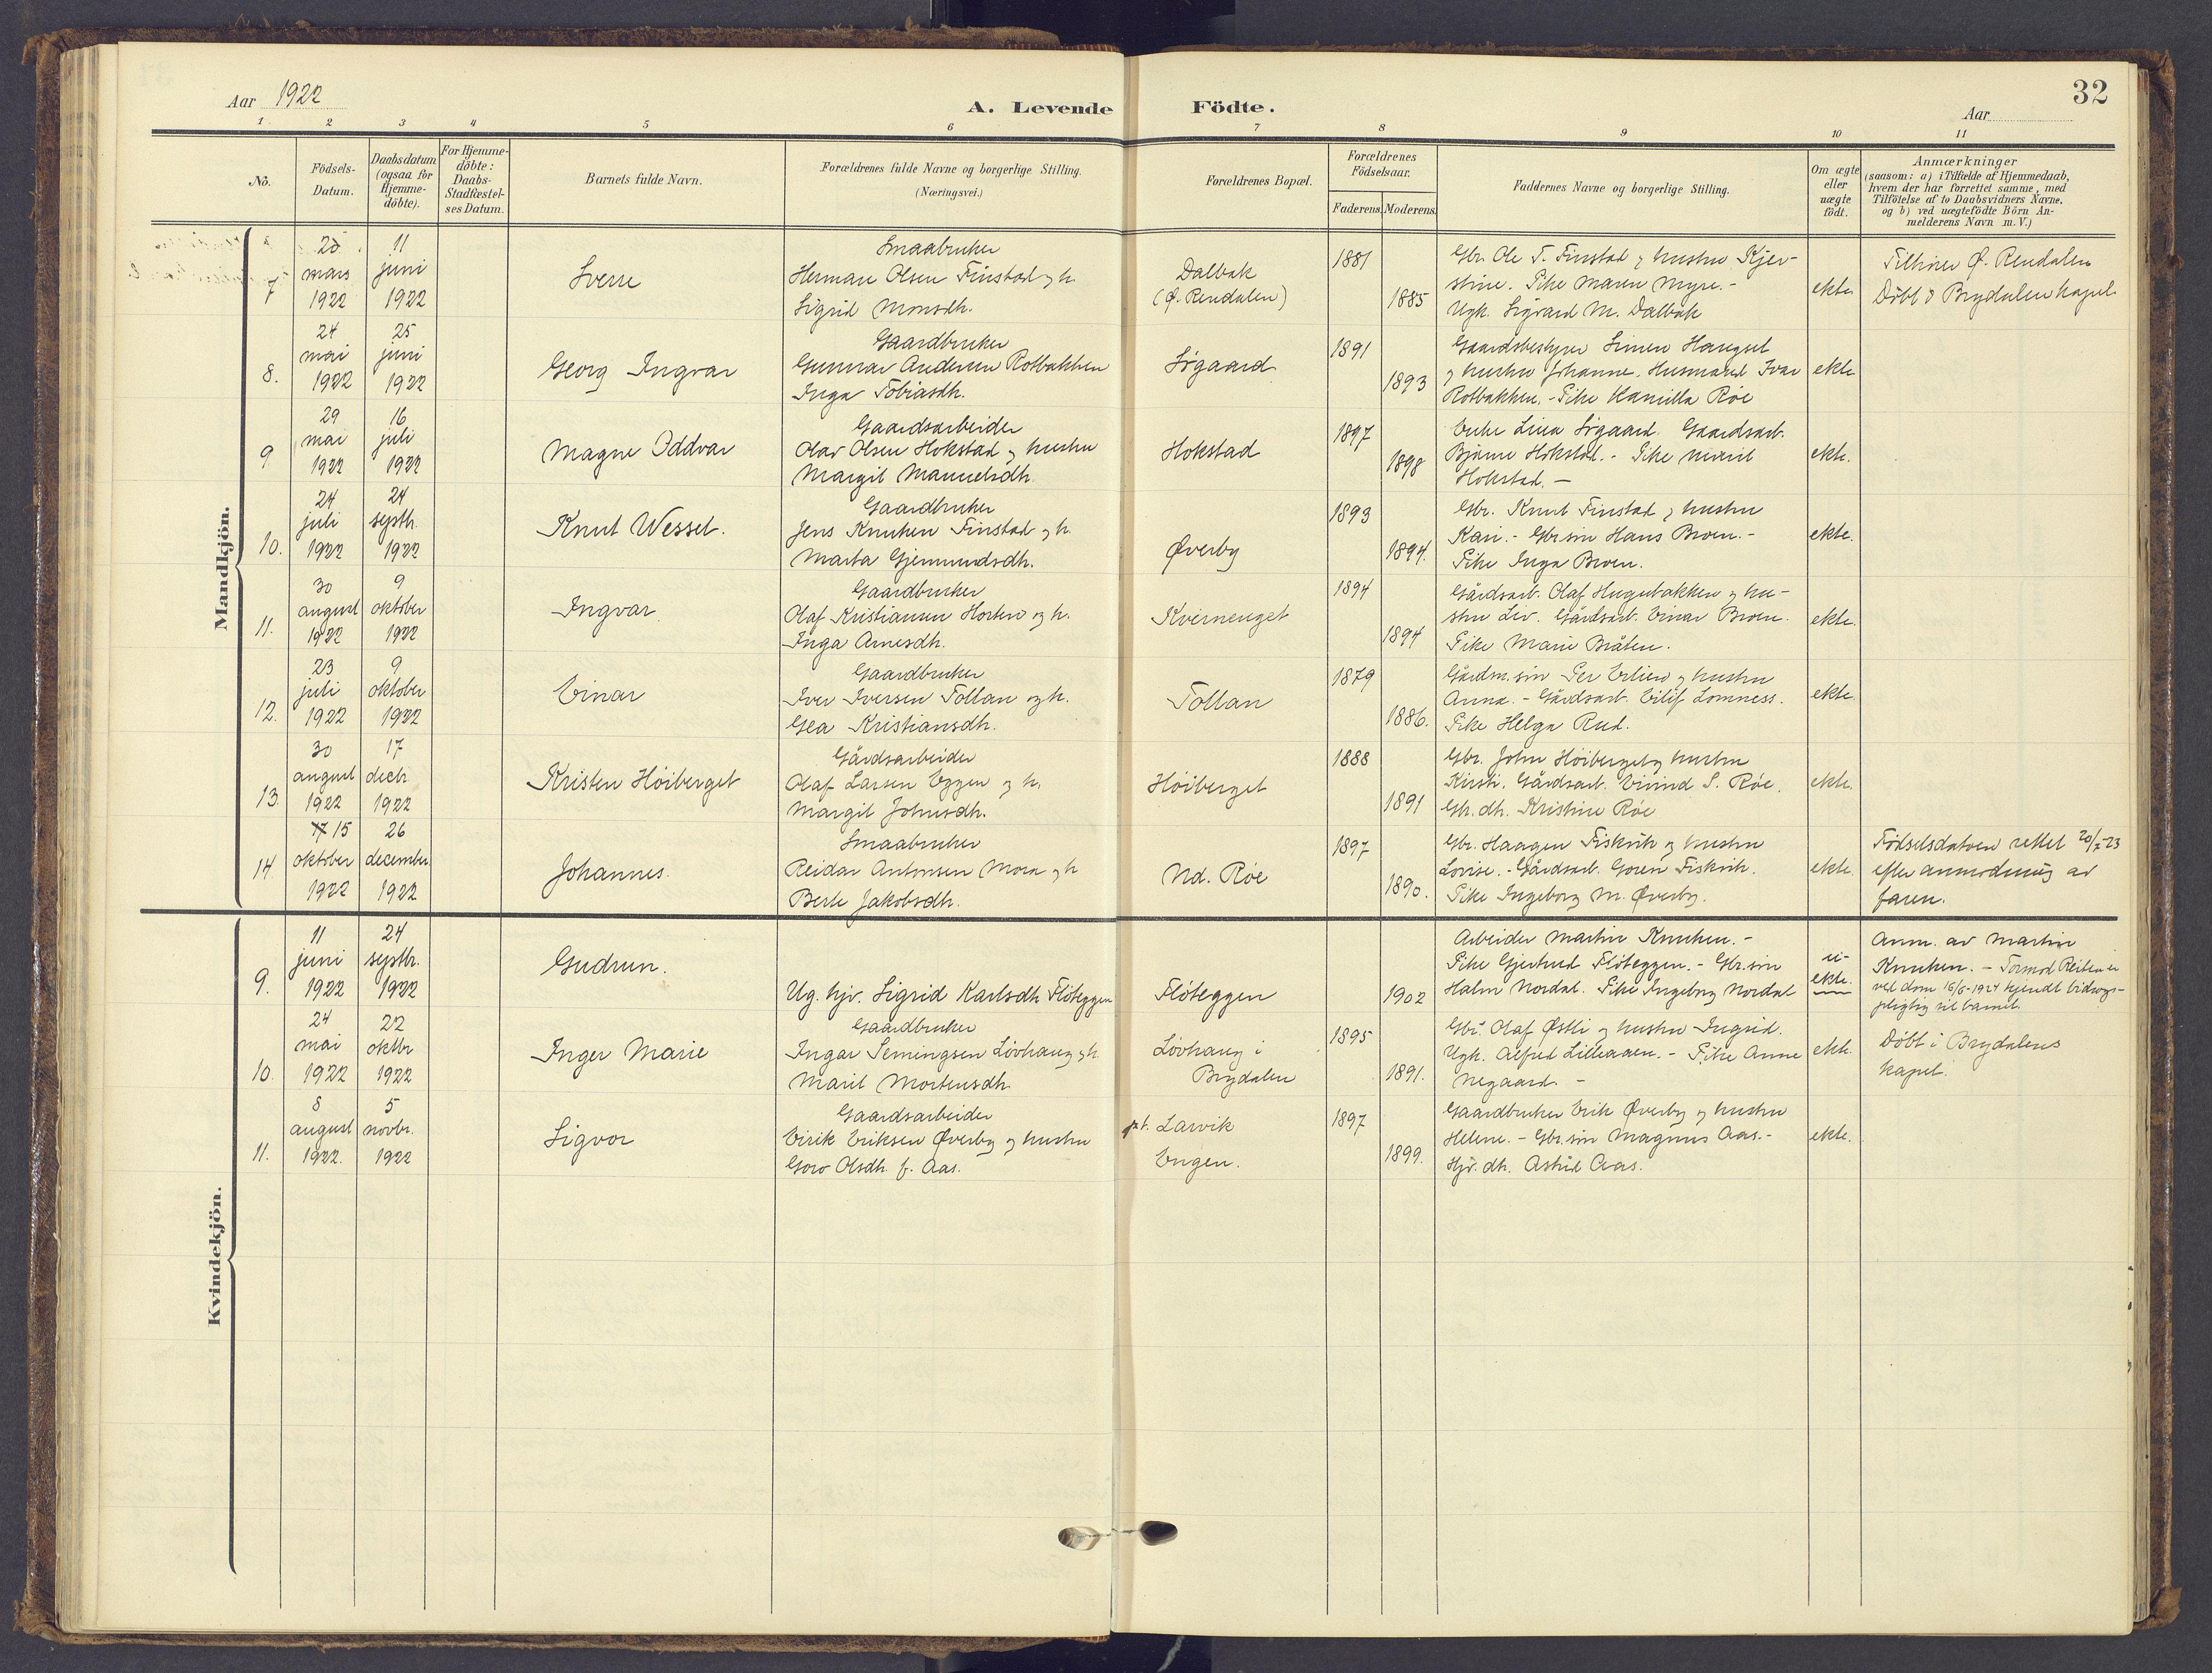 32
Aar 1922
A. Levende Födte.
Aar
1 2 3 4 5 6 7 8 9 10 11
No.
Födsels-Datum.
Daabsdatum (ogsaa for Hjemme-döbte).
For Hjemme-döbte: Daabs-Stadfæstel-ses Datum.
Barnets fulde Navn.
Forældrenes fulde Navne og borgerlige Stilling. (Næringsvei.)
Forældrenes Bopæl.
Forældrenes Födselsaar.
Faderens. Moderens.
Faddernes Navne og borgerlige Stilling.
Om ægte eller uægte födt.
Anmærkninger (saasom: a) i Tilfælde af Hjemmedaab, hvem der har forrettet samme, med Tilföielse af to Daabsvidners Navne. og b) ved uægtefödte Börn An-melderens Navn m.V.)
Mandkjön.
7
mars 1922
11 juni 1922
Sverre
Smaabruker
Herman Olsen Finstad og h.
Sigrid Monsdh.
Dalbak
(Ø. Rendalen)
1881
1885
Gbr. Ole T. Finstad og hustru Kjer-
stine. Pike Maren Myre. -
Ugk. Sigvard M. Dalbak
ekte
Tilhører Ø. Rendalen
Døbt i Brydalen kapel
8.
24 mai 1922
25 juni 1922
Georg Ingvar
Gaardbruker
Gunnar Andersen Rotbakken
Inga Tobiasdh.
Søgaard
1891
1893
Gaardsbestyrer Simen Hangset
og hustru Johanne. Husmand Ivar
Rotbakken. - Pike Kamilla Røe
ekte
9
29 mai 1922
16 juli 1922
Magne Oddvar
Gaardsarbeider
Olav Olsen Hokstad og hustru
Margit Manuelsdh.
Hokstad
1897
1898
Enke Lina Søgaard. Gaardsarb.
Bjarne Hokstad. - Pike
Hokstad. -
ekte.
10.
24 juli 1922
24 septbr. 1922
Knut Wessel.
Gaardbruker
Jens Knutsen Finstad og h.
Marta Gjermundsdh.
Øverby
1893
1894.
Gbr. Knut Finstad og hustru
Kari. - Gbr.søn Hans Broen. -
Pike Inga Broen.
ekte.
11.
30 august 1922
9 oktober 1922
Ingvar.
Gaardbruker
Olaf Kristiansen Horten og h.
Inga Arnesdh.
Kvernenget
1894
1894
Gårdsarb. Olaf Haugubakken og hu-
stru Liv. Gårdsarb. Einar Broen.
Pike Marie Bråten.
ekte.
12.
23 juli 1922
9 oktober 1922
Einar
Gaardbruker
Iver Iversen Tollan og h.
Gea Kristiansdh.
Tollan
1879
1886.
Gårdm.søn Per Erlien og hustru
Anna. - Gårdsarb. Eilif Lomness.
Pike Helga Rud.
ekte.
13.
30 august 1922
17 decbr. 1922
Kristen Höiberget
Gårdsarbeider
Olaf Larsen Eggen og h.
Margit Johnsdh.
Höiberget
1888
1891
Gbr. John Höiberget og hustru
Kirsti. Gårdsarb. Eivind S. Røe.
Gbr. dh. Kristine Røe
ekte.
14.
17 15 oktober 1922
26 december 1922
Johannes.
Smaabruker
Reidar Antonsen Mora og h
Berte Jakobsdh.
Nd. Røe
1897
1890.
Gbr. Haagen Fiskvik og hustru
Lovise. - Gårdsarb. Goren Fiskvik.
Pike Ingeborg M. Øverby.
ekte.
Fødselsdatoen rettet 20/7-23
efter anmodning av
faren.
Kvindekjön.
9.
11 juni 1922
24 septbr. 1922
Gudrun.
Ug. hjv. Sigrid Karlsdh. Flöteggen
Flöteggen
1902
Arbeider Martin Knutsen. -
Pike Gjertrud Flöteggen. - Gbr.søn
Halm Nordal. Pike Ingeborg Nordal
u-
ekte.
Anm. av Martin
Knutsen. - Tormod Reiten er
ved dom 16/6-1924 kjendt bidrags-
pligtig til barnet.
10.
24 mai 1922
22 oktbr 1922
Inger Marie
Gaardbruker
Ingar Semingsen Lövhaug og h.
Marit Mortensdh.
Lövhaug i
Brydalen
1895
1891.
Gbr. Olaf Østli og hustru Ingrid.
Ugk. Alfred Lilleaaen. - Pike Anne
Negaard -
ekte.
Døbt i Brydalens
kapel.
11.
8 august 1922.
5 novbr. 1922
Sigvor
Gaardsarbeider
Eirik Eriksen Øverby og hustru
Goro Olsdh. f. Aas.
p.t. Larvik
Engen.
1897
1899.
Gaardbruker Erik Øverby og hustru
Helene. - Gbr.søn Magnus Aas. -
Hjv. dh. Astrid Aas.
ekte.